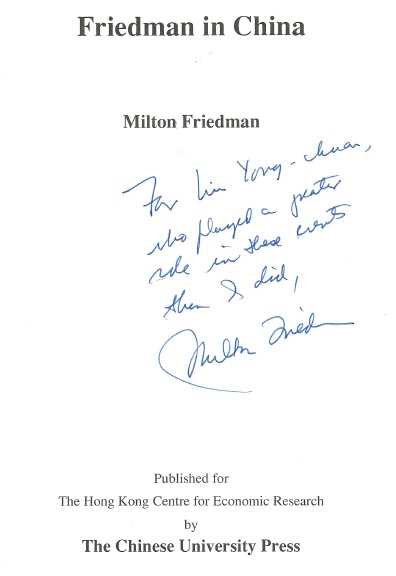 Friedman in China
Milton Friedman
For Liu Yong-chuan,
who played a greater
role in these events
than I did,
Milton Friedman
Published for
The Hong Kong Centre for Economic Research
by
The Chinese University Press